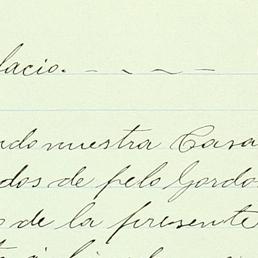 lacio. - ~ ~ -
ndo nuestra Casa
dos de pelo Gordo
o de la presente